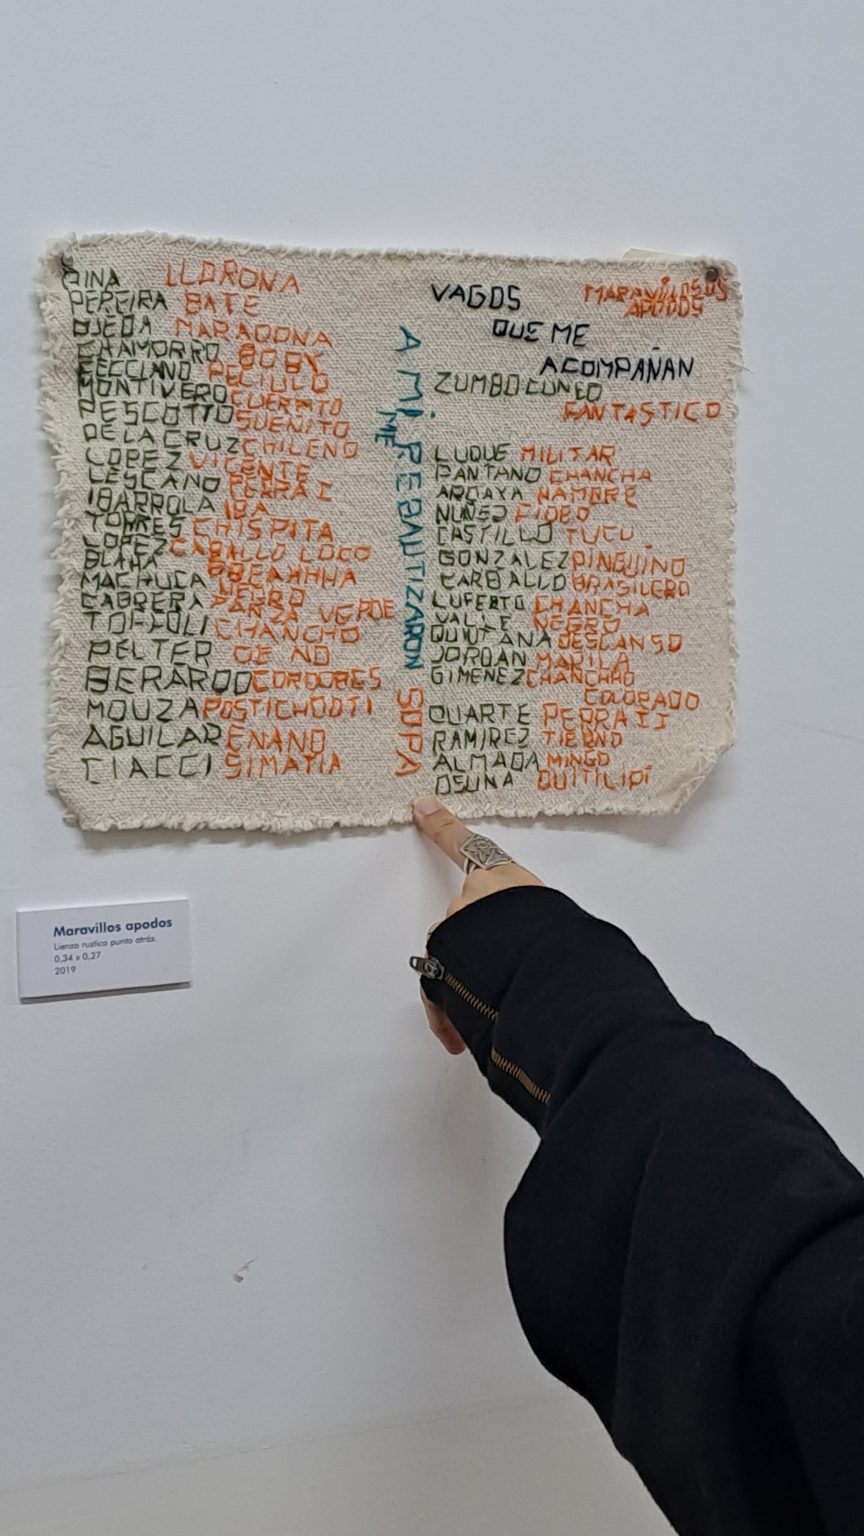 PINA LLORONA
PEREIRA BATE
OJEDA MARADONA
CHAMORRO BOBY
FECCIANO
MONTIVERO CUERVITO
PESCOTTO SUEÑITO
DE LA CRUZ CHILENO
LOPEZ VICENTE
LESCANO FERRAI
IBARROLA IBA
TORRES CHISPITA
LOPEZ CABALLO LOCO
BLAHA
MACHUCA NEGRO
CABRERA PANZA VERDE
TOFFOLI CHANCHO
PELTER DE NO
BERARDO CORDOBES
MOUZA POSTICHOOTI
AGUILAR ENANO
CIACCI SIMATIA
A MÍ ME REBAUTIZARON SOPA
VAGOS
QUE ME
ACOMPAÑAN
MARAVILLOSOS
APODOS
ZUMBO CUNEO
FANTASTICO
LUQUE MILITAR
PANTANO CHANCHA
ARDAYA HAMBRE
NUÑEZ FIDEO
CASTILLO TUCU
GONZALEZ PINGUINO
CARBALLO BRASILERO
LUFERTO CHANCHA
VALLE NEGRO
QUINTANA DESCANSO
JORDAN MARILA
GIMENEZ CHANCHAO
COLORADO
DUARTE PERRAII
RAMIREZ TIERNO
ALMADA MINGO
OSUNA QUITILIPI
Maravillos apodos
Lienzo rustico punto atrás.
0,34 x 0,27
2019